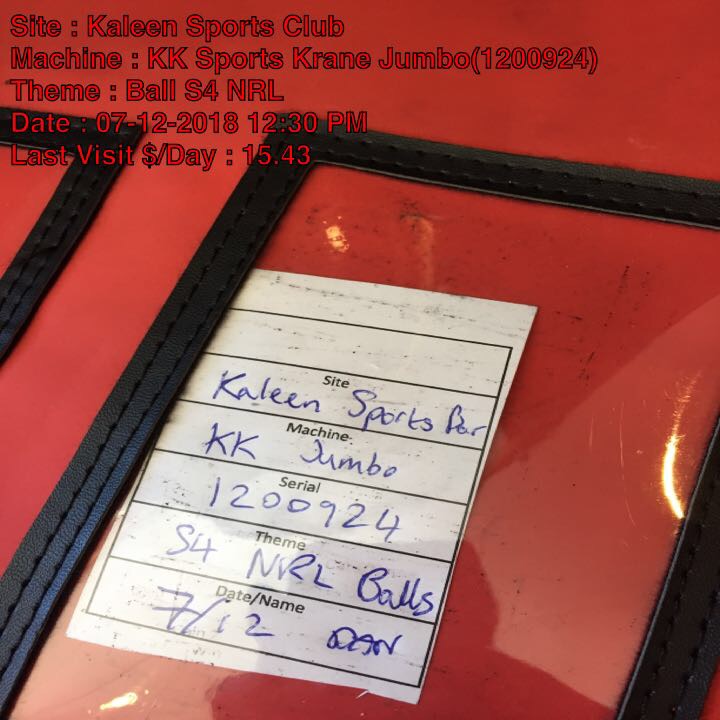 Site : Kaleen Sports Club
Machine : KK Sports Krane Jumbo(1200924)
Theme : Ball S4 NRL
Date : 07-12-2018 12:30 PM
Last Visit $/Day : 15.43
Site
Kaleen Sports Bar
Machine
KK Jumbo
Serial
1200924
Theme
S4 NRL Balls
Date/Name
7/12 DAN